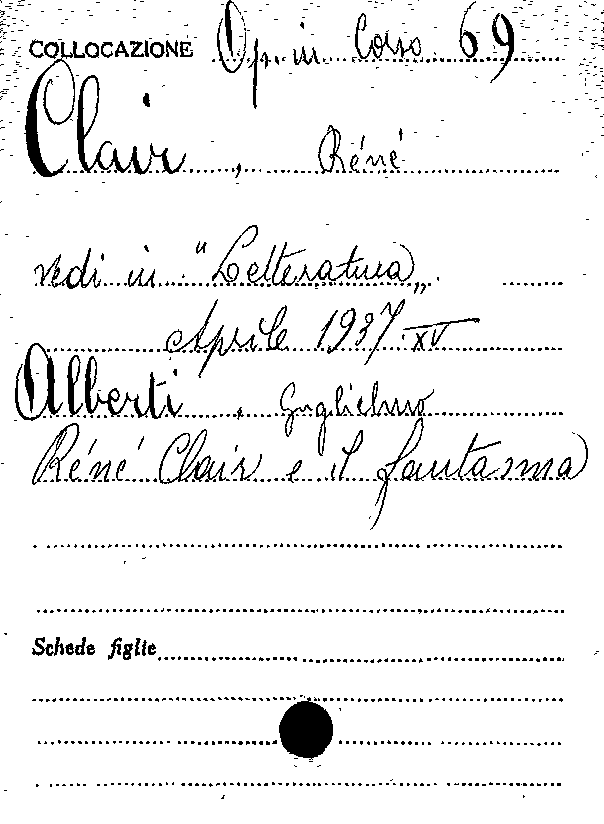 COLLOCAZIONE Op. in Corso 69
Clair, Réné
vedi in "Letteratura„
Aprile 1937 XV
Alberti, Guglielmo
Réné Clair e il fantasma
Schede figlie